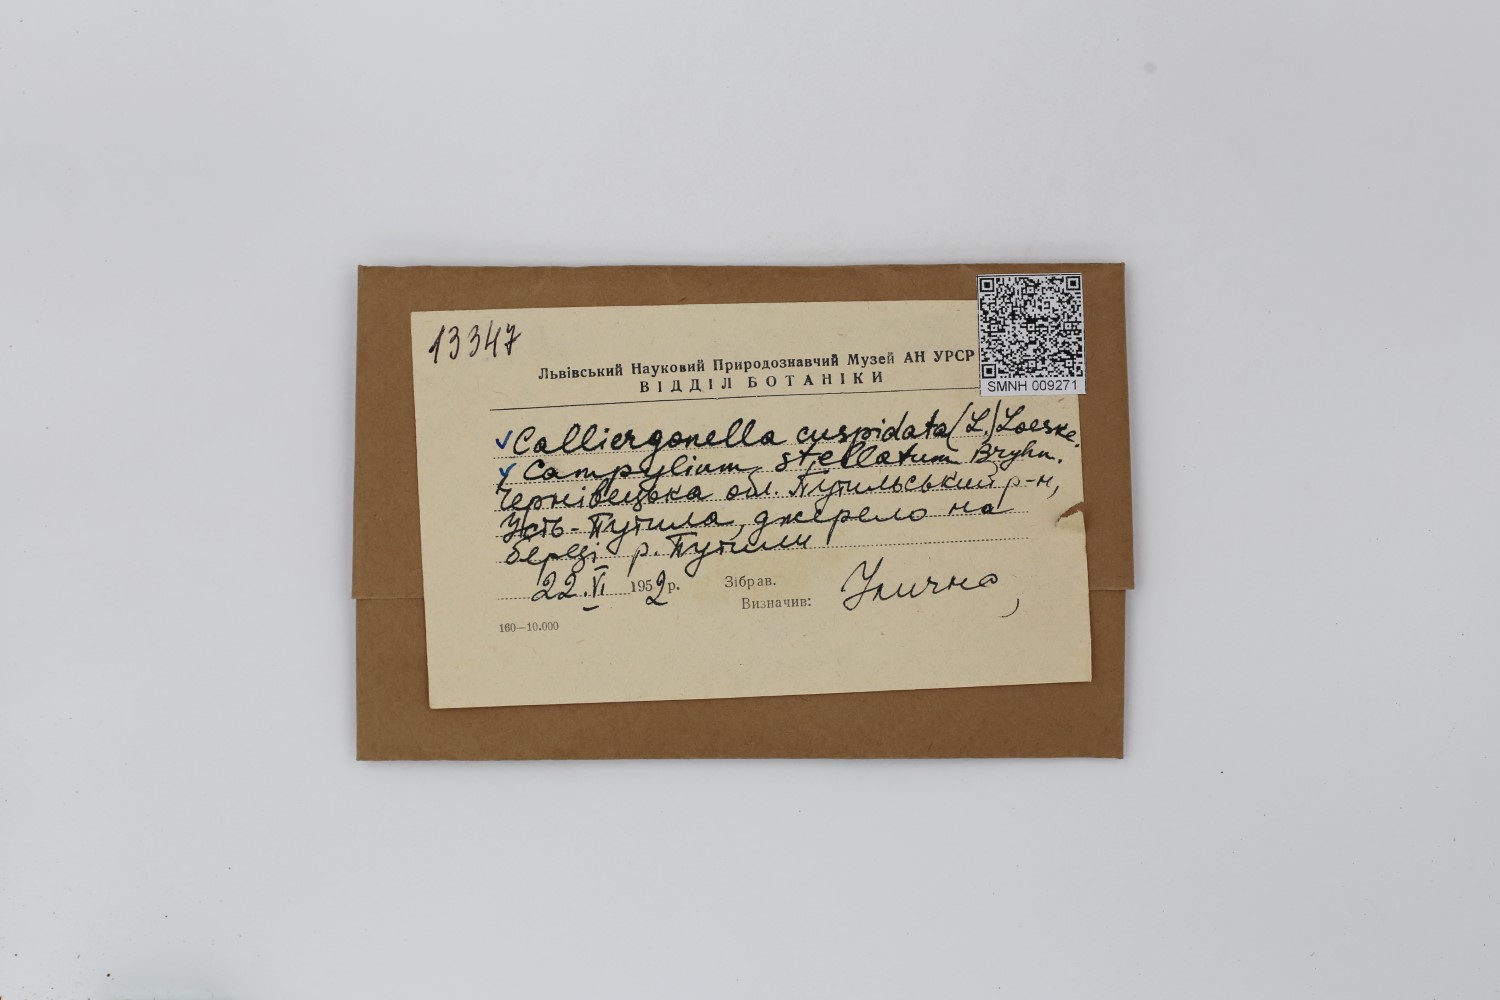 13347
Львівський Науковий Природознавчий Музей АН УРСР
ВІДДІЛ БОТАНІКИ
SMNH 009271
✓ Calliergonella cuspidata (L.) Loeske.
✓ Campylium stellatum Bryhn.
Чернівецька обл. Путильський р-н,
Усть-Путила, джерело на
березі р. Путили
22.VI 1952 р. Зібрав.
Визначив: Улична
160—10.000